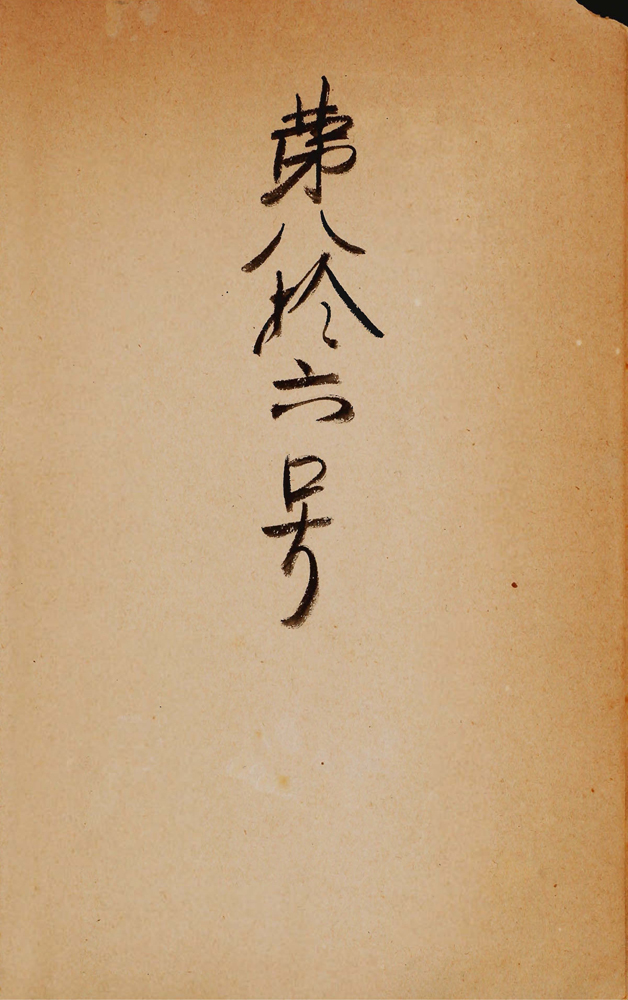 第八拾六号